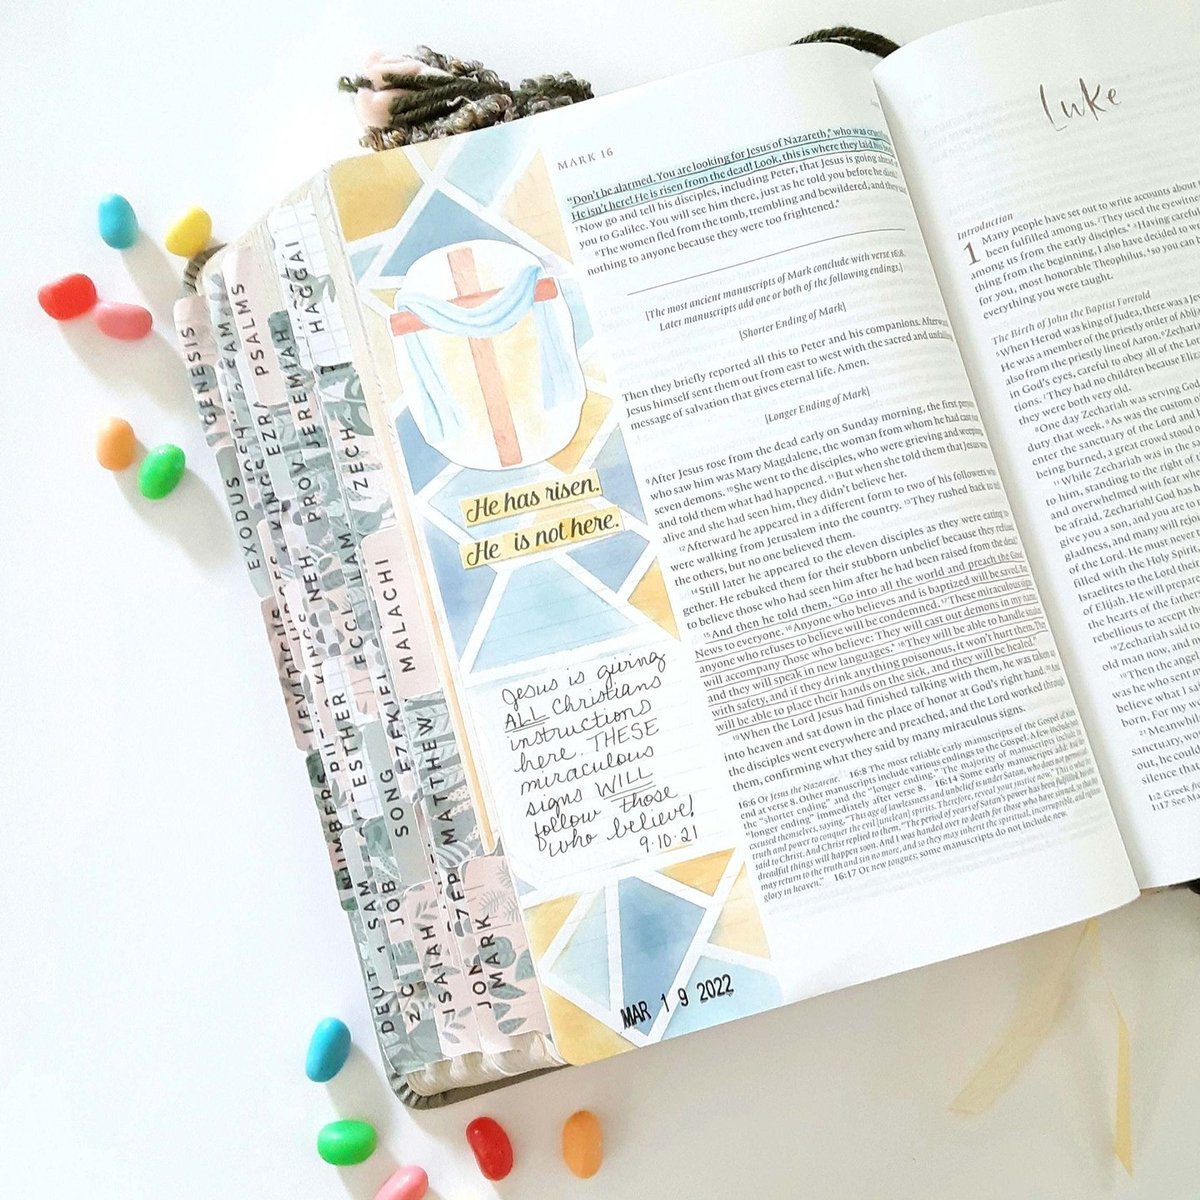 GENESIS
EXODUS
LEVITICUS
NUMBERS
DEUT
JOSH
1 SAM
2 SAM
1 KINGS
EZRA
NEH
ESTHER
JOB
PSALMS
PROV
ECCL
SONG
ISAIAH
JEREMIAH
LAM
EZEKIEL
JON
HAGGAI
ZECH
MALACHI
MATTHEW
MARK
He has risen.
He is not here.
Jesus is giving
ALL Christians
instructions
here. THESE
miraculous
signs WILL
follow those
who believe!
9·10·21
MAR 19 2022
MARK 16
"Don't be alarmed. You are looking for Jesus of Nazareth,* who was
He isn't here! He is risen from the dead! Look, this is where they laid his
7Now go and tell his disciples, including Peter, that Jesus is going ahead
you to Galilee. You will see him there, just as he told you before he died."
8The women fled from the tomb, trembling and bewildered, and they said
nothing to anyone because they were too frightened.*
[The most ancient manuscripts of Mark conclude with verse 16:8.
Later manuscripts add one or both of the following endings.]
[Shorter Ending of Mark]
Then they briefly reported all this to Peter and his companions. Afterward
Jesus himself sent them out from east to west with the sacred and unfailing
message of salvation that gives eternal life. Amen.
[Longer Ending of Mark]
9After Jesus rose from the dead early on Sunday morning, the first person
who saw him was Mary Magdalene, the woman from whom he had cast out
seven demons. 10She went to the disciples, who were grieving and weeping,
and told them what had happened. 11But when she told them that Jesus was
alive and she had seen him, they didn't believe her.
12Afterward he appeared in a different form to two of his followers who
were walking from Jerusalem into the country. 13They rushed back to tell
the others, but no one believed them.
14Still later he appeared to the eleven disciples as they were eating to-
gether. He rebuked them for their stubborn unbelief because they refused
to believe those who had seen him after he had been raised from the dead.*
15And then he told them, "Go into all the world and preach the Good
News to everyone. 16Anyone who believes and is baptized will be saved. But
anyone who refuses to believe will be condemned. 17These miraculous signs
will accompany those who believe: They will cast out demons in my name,
and they will speak in new languages.* 18They will be able to handle snakes
with safety, and if they drink anything poisonous, it won't hurt them. They
will be able to place their hands on the sick, and they will be healed."
19When the Lord Jesus had finished talking with them, he was taken up
into heaven and sat down in the place of honor at God's right hand. 20And
the disciples went everywhere and preached, and the Lord worked through
them, confirming what they said by many miraculous signs.
16:6 Or Jesus the Nazarene. 16:8 The most reliable early manuscripts of the Gospel of Mark
end at verse 8. Other manuscripts include various endings to the Gospel. A few include both
the "shorter ending" and the "longer ending." The majority of manuscripts include the
"longer ending" immediately after verse 8. 16:14 Some early manuscripts add: And they
excused themselves, saying, "This age of lawlessness and unbelief is under Satan, who does not permit
truth and power to conquer the evil [unclean] spirits. Therefore, reveal your justice now." This is what they
said to Christ. And Christ replied to them, "The period of years of Satan's power has been fulfilled, but other
dreadful things will happen soon. And I was handed over to death for those who have sinned, so that they
may return to the truth and sin no more, and so they may inherit the spiritual, incorruptible, and righteous
glory in heaven." 16:17 Or new tongues; some manuscripts do not include new.
Luke
Introduction
1 Many people have set out to write accounts about
been fulfilled among us. 2They used the eyewitness
among us from the early disciples.* 3Having carefully
thing from the beginning, I also have decided to write
for you, most honorable Theophilus, 4so you can
everything you were taught.
The Birth of John the Baptist Foretold
5When Herod was king of Judea, there was a
He was a member of the priestly order of
also from the priestly line of Aaron. 6Zechariah
in God's eyes, careful to obey all of the Lord's
tions. 7They had no children because Elizabeth
they were both very old.
8One day Zechariah was serving God
duty that week. 9As was the custom of
enter the sanctuary of the Lord and
being burned, a great crowd stood
11While Zechariah was in the
to him, standing to the right of
and overwhelmed with fear
be afraid, Zechariah! God has
give you a son, and you are to
gladness, and many will rejoice
of the Lord. He must never
filled with the Holy Spirit,
Israelites to the Lord their
of Elijah. He will prepare
the hearts of the fathers
rebellious to accept
18Zechariah said to
old man now, and
19Then the angel
was he who sent
believe what I
born. For my
21Meanwhile,
sanctuary,
out, he
silence that
1:2 Greek
1:17 See